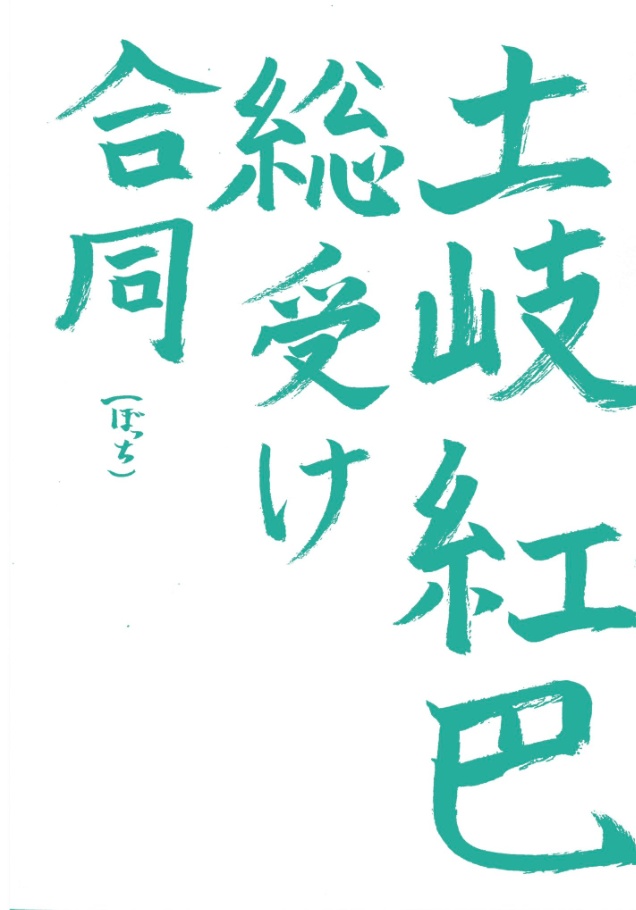 土岐紅巴
総受け
合同
(ぼっち)